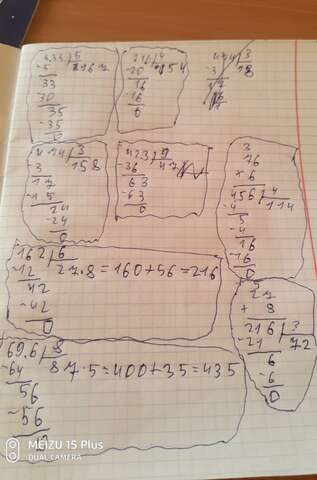 -5
33
30
35
-35
0
216 | 4
-20 54
16
-16
0
474 | 3
-3 158
17
-15
24
-24
0
423 | 9
-36 47
63
-63
0
3
76
× 6
456 | 4
-4 114
5
-4
16
-16
0
162 | 6
-12 27·8=160+56=216
42
-42
0
5
27
× 8
216 | 3
-21 72
6
-6
0
696 | 8
-64 87·5=400+35=435
56
-56
MEIZU 15 Plus
DUAL CAMERA